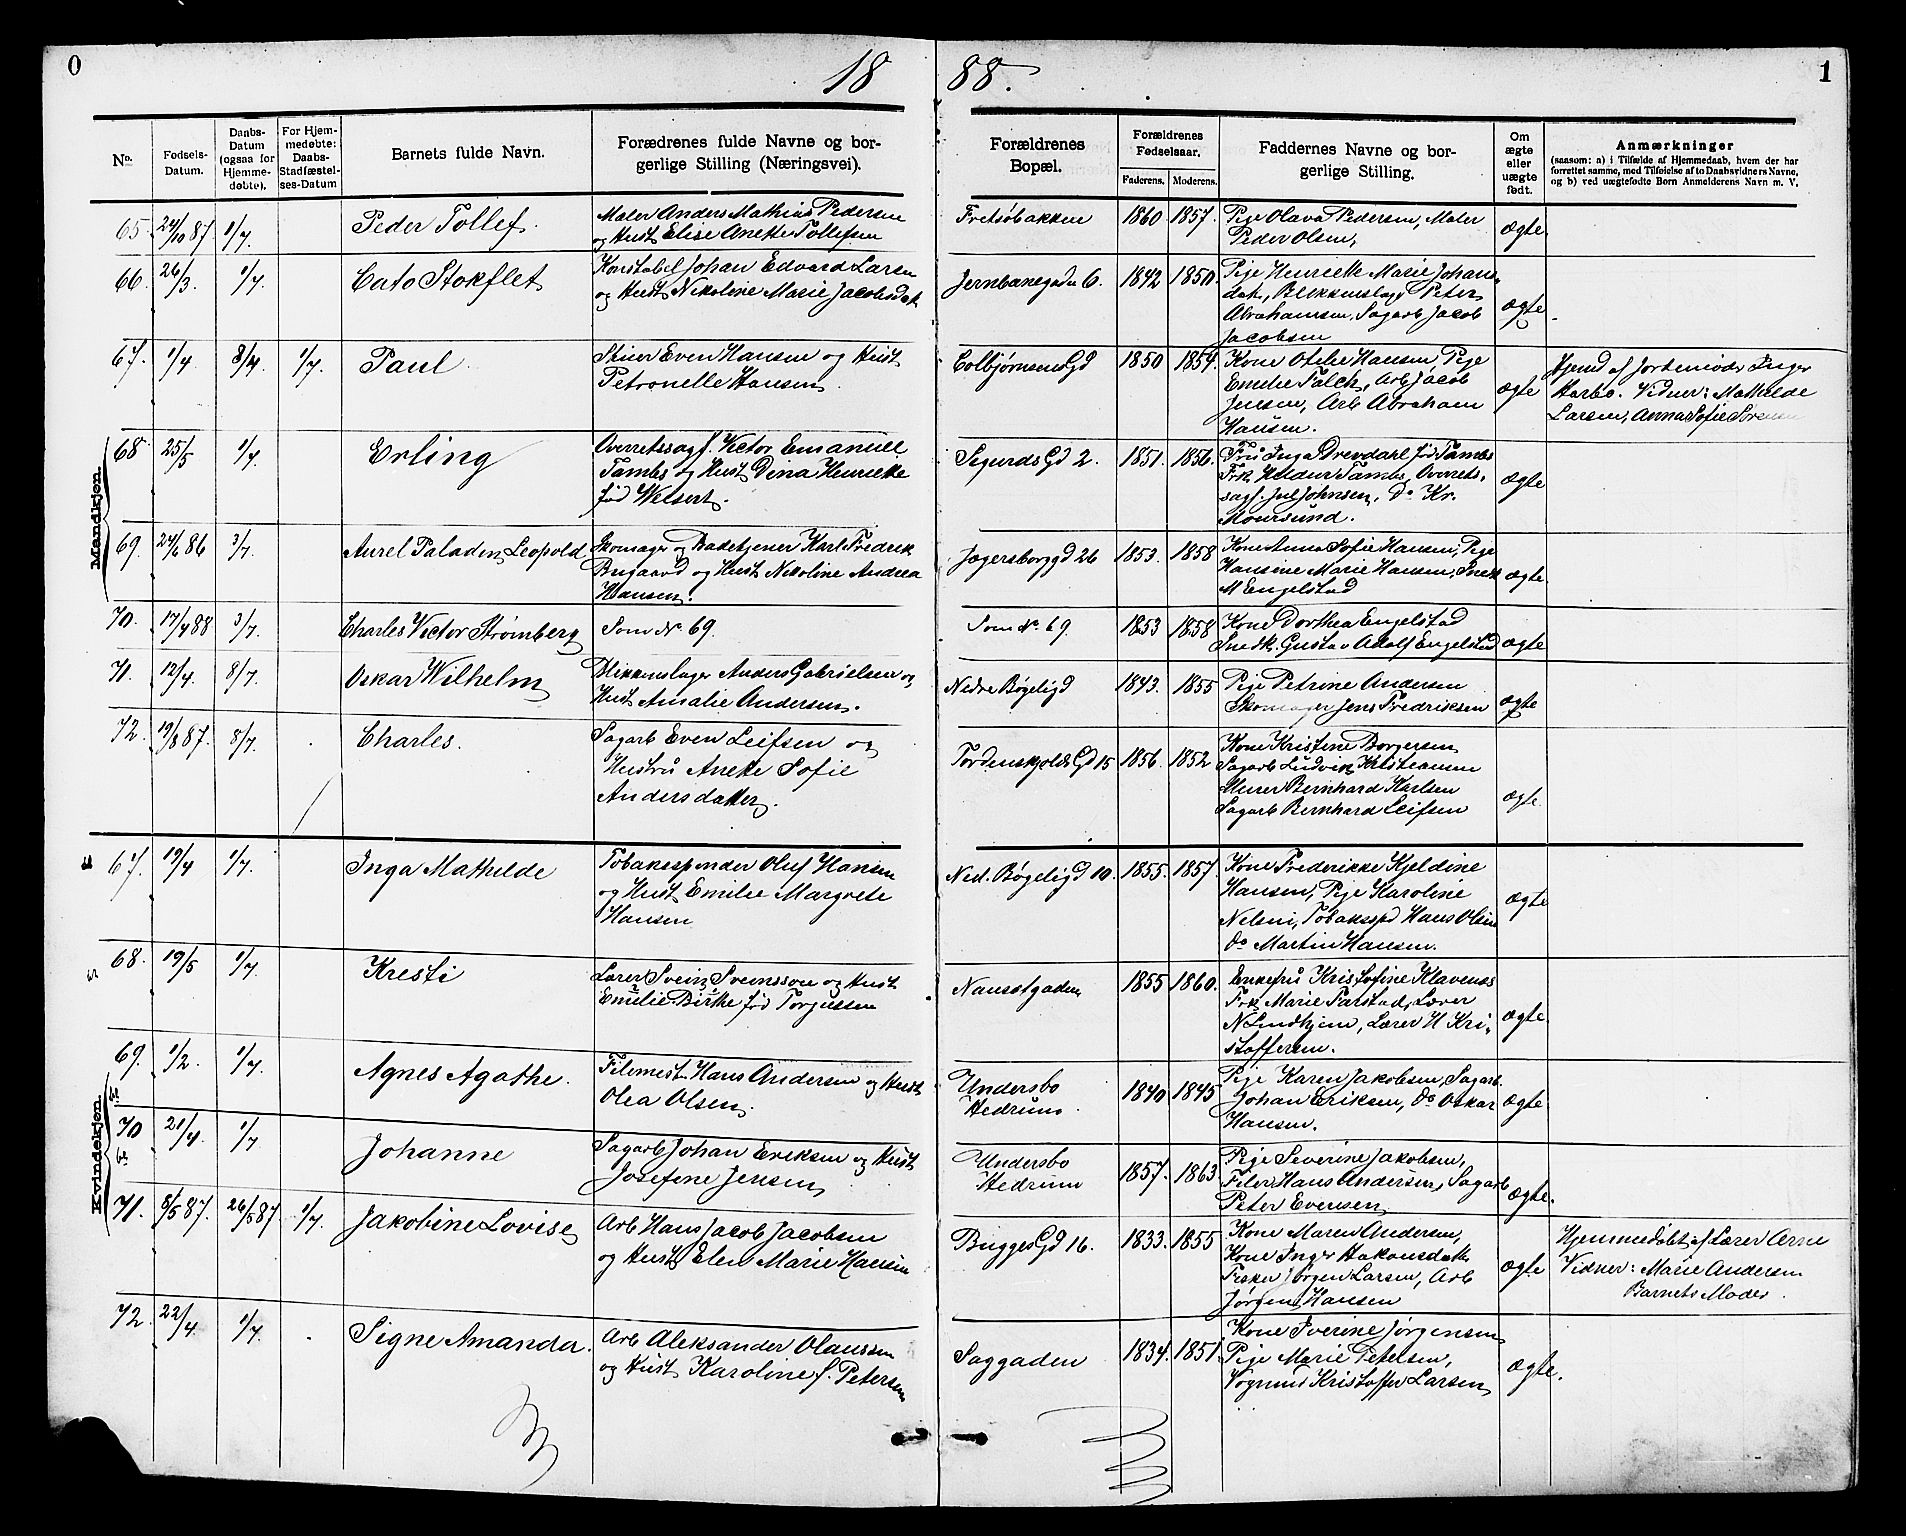 0
18 88.
1
No.
Fødsels-
Datum.
Daabs-
Datum
(ogsaa for
Hjemme-
døbte).
For Hjem-
medøbte:
Daabs-
Stadfæstel-
ses-Datum
Barnets fulde Navn.
Forædrenes fulde Navne og bor-
gerlige Stilling (Næringsvei).
Forældrenes
Bopæl.
Forældrenes
Fødselsaar.
Faderens. Moderens.
Faddernes Navne og bor-
gerlige Stilling.
Om
ægte
eller
uægte
født.
Anmærkninger
(saasom: a) i Tilfælde af Hjemmedaab, hvem der har
forrettet samme, med Tilføielse af to Daabsvidners Navne,
og b) ved uægtefødte Børn Anmelderens Navn m. V.
Mandkjøn.
65. 24/10 87. 1/7. Peder Tollef.
Maler Anders Mathias Pedersen
og Hust Elise Anette Tollefsen
Fretsøbakken 1860 1857.
Pige Olava Pedersen, Maler
Peder Olsen,
ægte
66. 26/3. 1/7. Cato Stokflet
Konstabel Johan Edvard Larsen
og Hust Nikoline Marie Jacobsdat
Jernbanegaden 6. 1842 1850.
Pige Henriette Marie Johans
dat, Blikkenslag Peter
Abrahamsen, Sagarb Jacob
Jacobsen
ægte
67. 1/4 8/4. 1/7. Paul
Stuer Even Hansen og Hust
Petronelle Hansen
Colbjørnsens Gd 1850 1854.
Kone Otelie Hansen, Pige
Emilie Falck, Arb Jacob
Jensen, Arb Abraham
Hansen.
ægte
Hjemd af Jordemoder Inger
Harbo. Vidner: Mathilde
Larsen, Anna Sofie Sørensen
68. 25/5 1/7. Erling
Overretssagf. Victor Emanuel
Tambs og Hust Dina Henriette
fød Weisert.
Sigurds Gd 2. 1851. 1856.
Fru Inga Drevdahl fød Tambs
Frk Hildur Tambs, Overrets-
sagf. Jul Johnsen, Do Kr.
Moursund.
ægte
69. 24/6 86 3/7. Aurel Paladin Leopold
Skomager og Badetjener Karl Fredrik
Brugaard og Hust Nikoline Andrea
Hansen.
Jægersborggd 26 1853. 1858
Kone Anna Sofie Hansen, Pige
Hansine Marie Hansen, Snedk
M Engelstad
ægte
70. 17/4 88 3/7. Charles Victor Strømberg
Som No. 69.
Som No. 69. 1853 1858
Kone Dorthea Engelstad
Snedk. Gustav Adolf Engelstad
ægte
71. 12/4. 8/7. Oskar Wilhelm
Blikkenslager Anders Gabrielsen og
Hust Amalie Andersen.
Nedre Bøgeligd 1843. 1855
Pige Petrine Andersen
Skomager Jens Fredriksen
ægte
72. 19/8 87. 8/7. Charles.
Sagarb Even Leifsen og
Hustru Anette Sofie
Andersdatter.
Tordenskjolds Gd 15 1856. 1852
Kone Kristine Borgersen
Sagarb Ludvik Kristiansen
Murer Bernhard Karlsen
Sagarb Bernhard Leifsen
ægte
Kvindekjøn.
67. 19/4 1/7. Inga Mathilde
Tobakspinder Oluf Hansen
og Hust Emilie Margrete
Hansen
Ned. Bøgeligd 10. 1855. 1857.
Kone Frederikke Kjeldine
Hansen, Pige Karoline
Nelsen, Tobakspd Hans Olsen
Do Martin Hansen.
ægte
68. 19/5 1/7. Kresti
Lærer Svein Sveinsson og Hust
Emilie Birthe fød Torjussen
Nansetgaden 1855 1860.
Enkefru Kris Sofine Klavenæs
Frk Marie Farstad, Lærer
N Lindhjem, Lærer H Kri-
stoffersen.
ægte
69. 1/2. 1/7. Agnes Agathe.
Filemest. Hans Andersen og Hust
Olea Olsen.
Undersbo
Hedrum 1840 1845
Pige Karen Jakobsen, Sagarb.
Johan Eriksen, Do Oskar
Hansen.
ægte
70 21/4. 1/7 Johanne
Sagarb Johan Eriksen og Hust
Josefine Jensen
Undersbo
Hedrum 1857. 1863
Pige Severine Jakobsen,
Filer Hans Andersen, Sagarb
Peter Evensen
ægte.
71. 8/5 87. 26/5 87 1/7. Jakobine Lovise
Arb Hans Jacob Jacobsen
og Hust Elen Marie Hansen
Brygges Gd 16. 1833. 1855
Kone Maren Andersen,
Kone Inger Hakonsdatt
Fisker Jørgen Larsen, Arb
Jørgen Hansen
ægte
Hjemmedøbt af Lærer Arne
Vidner: Marie Andersen
Barnets Moder.
72. 22/4. 1/7. Signe Amanda.
Arb Aleksander Olaussen
og Hust Karoline f. Petersen
Saggaden 1834. 1851
Kone Iverine Jørgensen
Pige Marie Petersen,
Vogmnd Kristoffer Larsen
ægte.